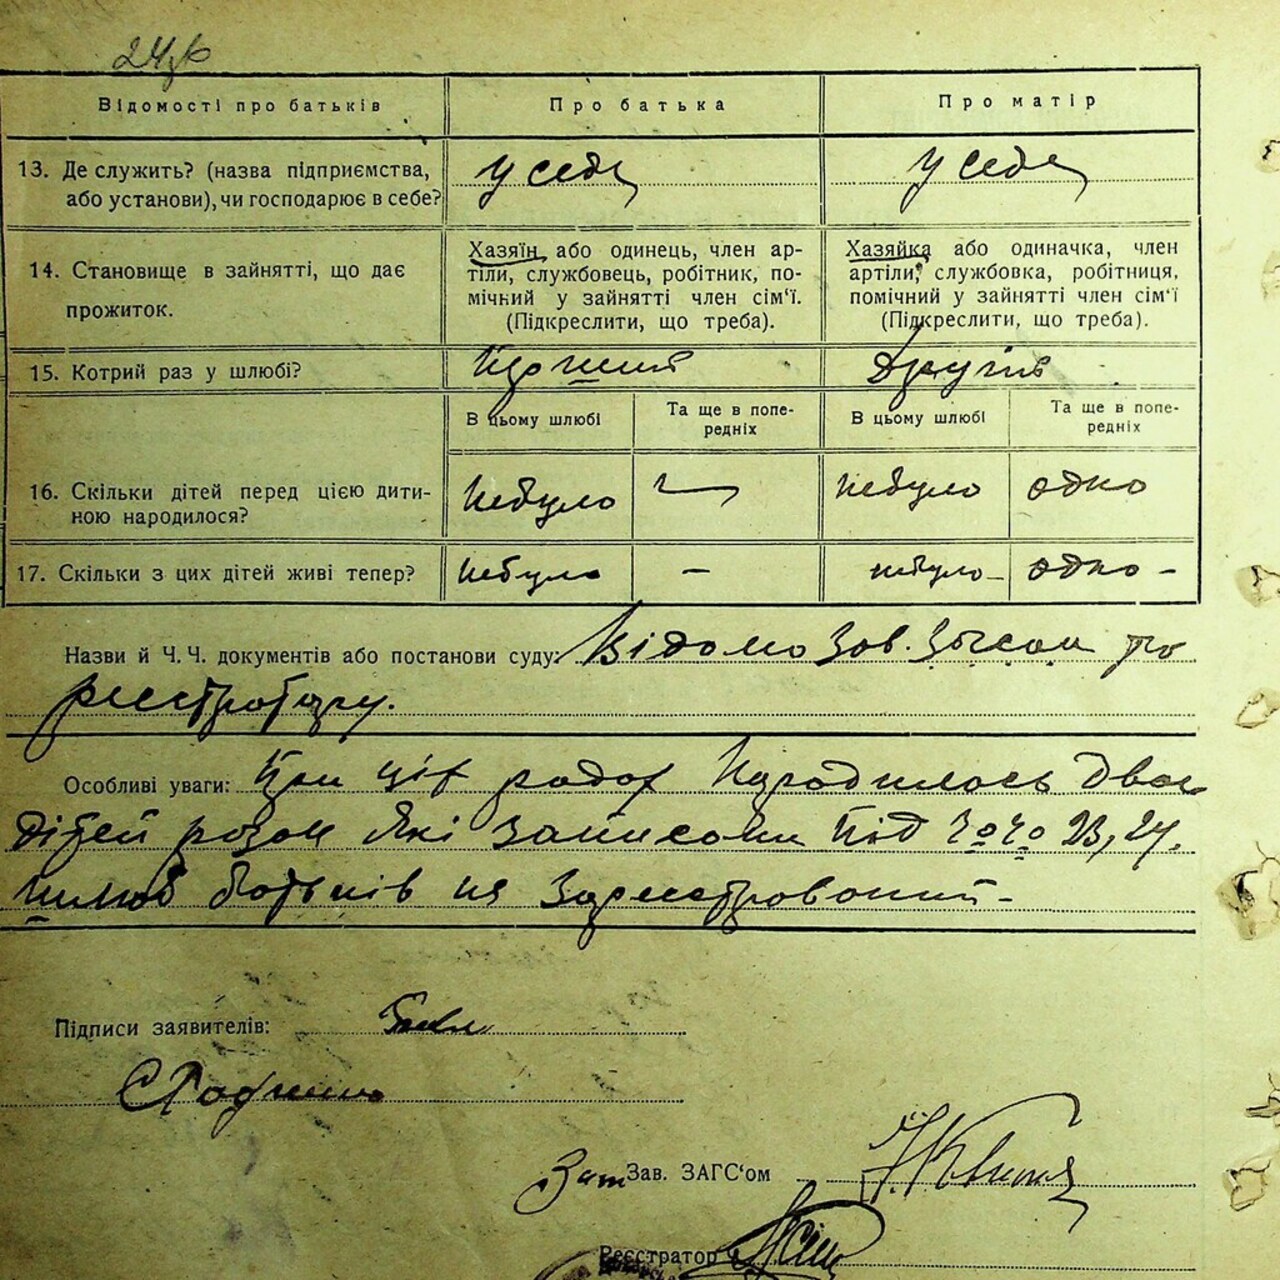 24
Відомості про батьків
Про батька
Про матір
13. Де служить? (назва підприємства,
або установи), чи господарює в себе?
у себе
у себе
14. Становище в зайнятті, що дає
прожиток.
Хазяїн, або одинець, член ар-
тіли, службовець, робітник, по-
мічний у зайнятті член сім'ї.
(Підкреслити, що треба).
Хазяйка або одиначка, член
артіли, службовка, робітниця,
помічний у зайнятті член сім'ї
(Підкреслити, що треба).
15. Котрий раз у шлюбі?
Перший
Другий
В цьому шлюбі
Та ще в попе-
редніх
В цьому шлюбі
Та ще в попе-
редніх
16. Скільки дітей перед цією дити-
ною народилося?
небуло
небуло
одно
17. Скільки з цих дітей живі тепер?
небуло
–
небуло –
одно –
Назви й Ч. Ч. документів або постанови суду: Відомо Зав. Загсом по
реєстратору.
Особливі уваги: При цій родах Народилось двоє
дітей разом які записани під 23, 24.
шлюб батьків не Зареєстрований –
Підписи заявителів:
Зат Зав. ЗАГС'ом
Реєстратор